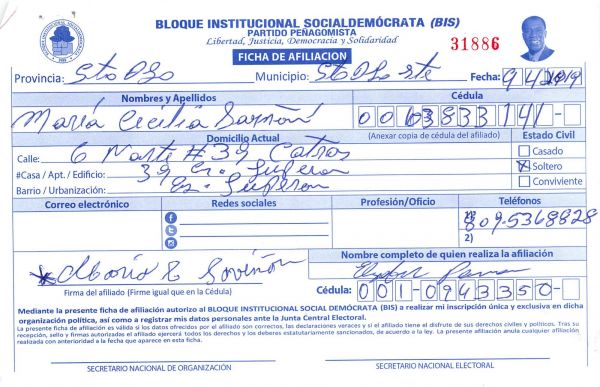 BLOQUE INSTITUCIONAL SOCIALDEMÓCRATA (BIS)
PARTIDO PEÑAGOMISTA
Libertad, Justicia, Democracia y Solidaridad
31886
FICHA DE AFILIACION
Provincia: Sto Dgo Municipio: Sto Dgo Este Fecha: 9/4/
Nombres y Apellidos Cédula
María Cecilia 00103833141-
Domicilio Actual (Anexar copia de cédula del afiliado) Estado Civil
Calle: 6 Norte # 39 Casado
#Casa / Apt. / Edificio: 39 Soltero
Barrio / Urbanización: Conviviente
Correo electrónico Redes sociales Profesión/Oficio Teléfonos
1) 809-5368828
2)
Nombre completo de quien realiza la afiliación
María
Firma del afiliado (Firme igual que en la Cédula) Cédula: 001-0943350-
Mediante la presente ficha de afiliación autorizo al BLOQUE INSTITUCIONAL SOCIAL DEMÓCRATA (BIS) a realizar mi inscripción única y exclusiva en dicha
organización política, así como a registrar mis datos personales ante la Junta Central Electoral.
La presente ficha de afiliación es válida si los datos ofrecidos por el afiliado son correctos, las declaraciones veraces y si el afiliado tiene el disfrute de sus derechos civiles y políticos. Tras su
recepción, sello y firmas autorizadas el afiliado ejercerá todos los derechos y los deberes estatutariamente sancionados, de acuerdo a la ley. La presente afiliación anula cualquier afiliación
realizada con anterioridad a la fecha que aparece en esta ficha.
SECRETARIO NACIONAL DE ORGANIZACIÓN SECRETARIO NACIONAL ELECTORAL